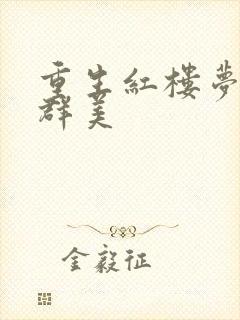 重生紅樓夢
群美
金毅征